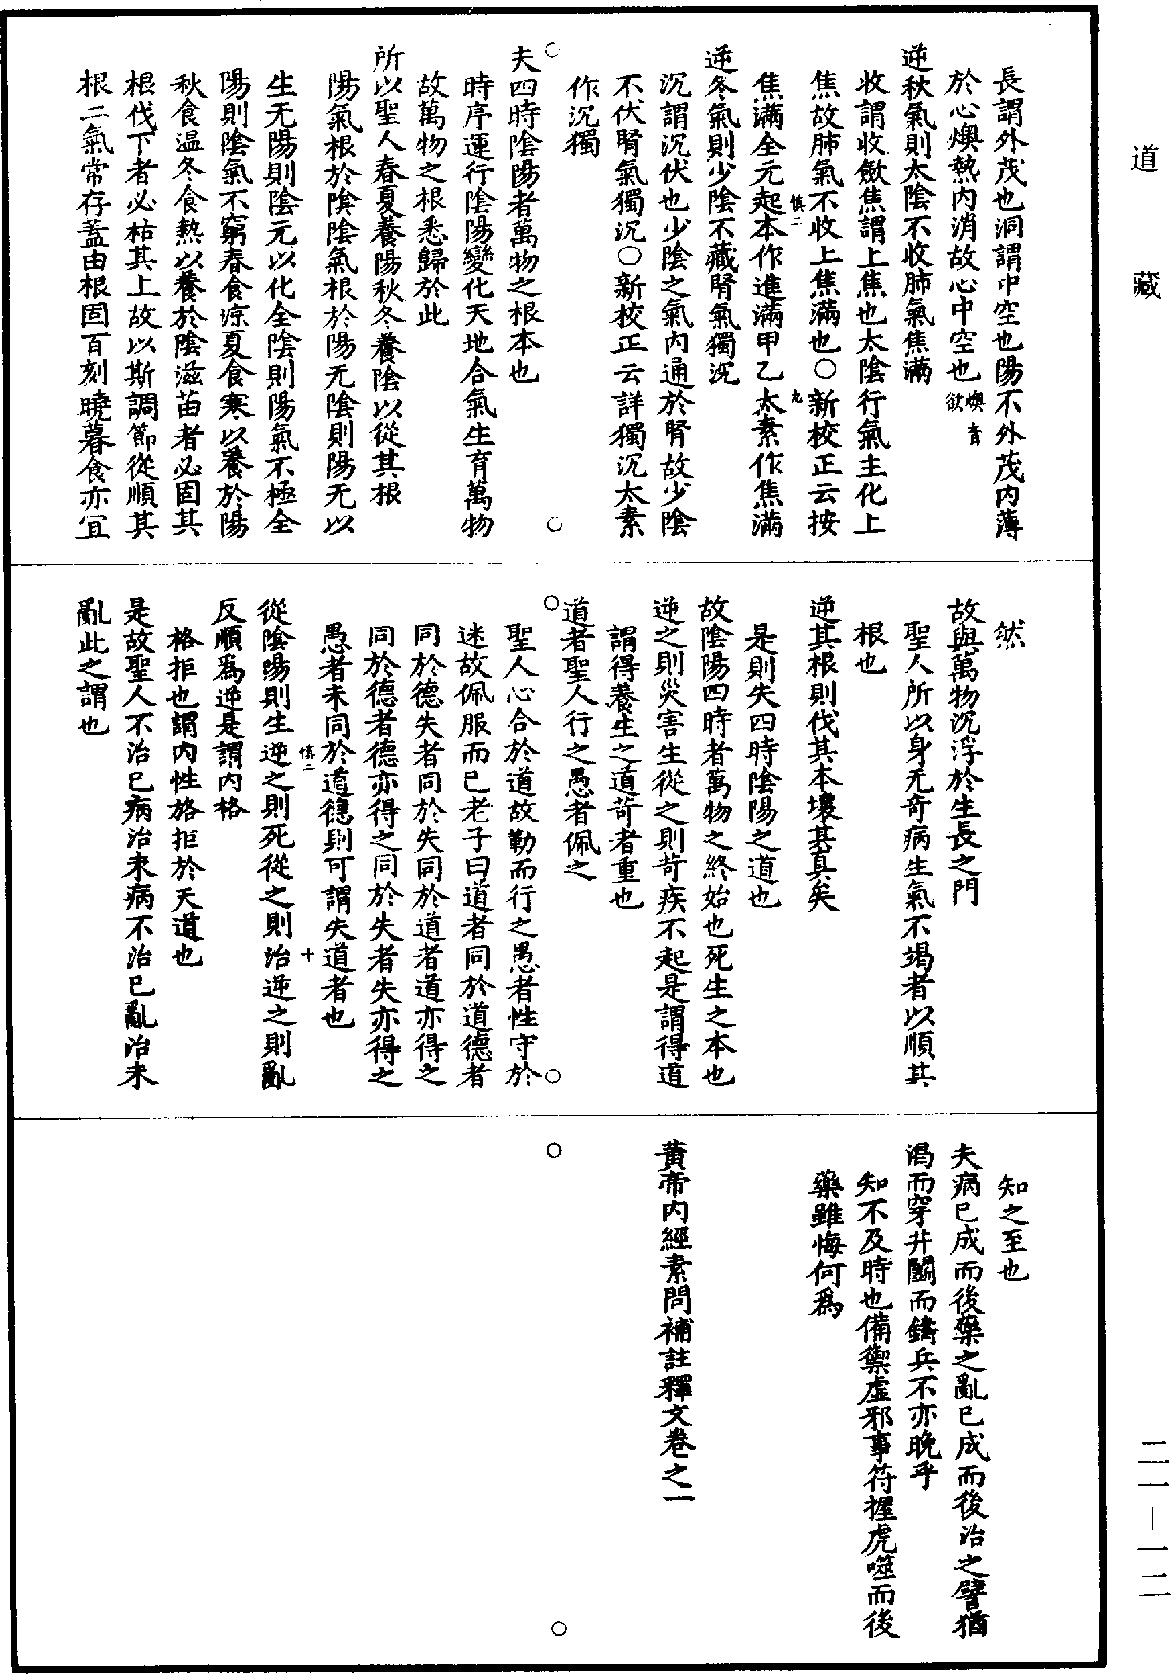 道藏
長謂外茂也洞謂中空也陽不外茂内薄
於心燠熱内消故心中空也燠音欲
逆秋氣則太陰不收肺氣焦滿
收謂收斂焦謂上焦也太陰行氣主化上
焦故肺氣不收上焦滿也○新校正云按
慎二
九
焦滿全元起本作進滿甲乙太素作焦滿
逆冬氣則少陰不藏腎氣獨沉
沉謂沉伏也少陰之氣内通於腎故少陰
不伏腎氣獨沉○新校正云詳獨沉太素
作沉獨
夫四時陰陽者萬物之根本也
時序運行陰陽變化天地合氣生育萬物
故萬物之根悉歸於此
所以聖人春夏養陽秋冬養陰以從其根
陽氣根於陰陰氣根於陽无陰則陽无以
生无陽則陰无以化全陰則陽氣不極全
陽則陰氣不窮春食凉夏食寒以養於陽
秋食温冬食熱以養於陰滋苗者必固其
根伐下者必枯其上故以斯調節從順其
根二氣常存蓋由根固百刻曉暮食亦宜
然
故與萬物沉浮於生長之門
聖人所以身无奇病生氣不竭者以順其
根也
逆其根則伐其本壞其真矣
是則失四時陰陽之道也
故陰陽四時者萬物之終始也死生之本也
逆之則災害生從之則苛疾不起是謂得道
謂得養生之道苛者重也
道者聖人行之愚者佩之
聖人心合於道故勤而行之愚者性守於
迷故佩服而已老子曰道者同於道德者
同於德失者同於失同於道者道亦得之
同於德者德亦得之同於失者失亦得之
愚者未同於道德則可謂失道者也
慎二
十
從陰陽則生逆之則死從之則治逆之則亂
反順爲逆是謂内格
格拒也謂内性格拒於天道也
是故聖人不治已病治未病不治已亂治未
亂此之謂也
知之至也
夫病已成而後藥之亂已成而後治之譬猶
渴而穿井鬬而鑄兵不亦晚乎
知不及時也備禦虛邪事符握虎噬而後
藥雖悔何爲
黄帝内經素問補註釋文卷之一
二一—一二